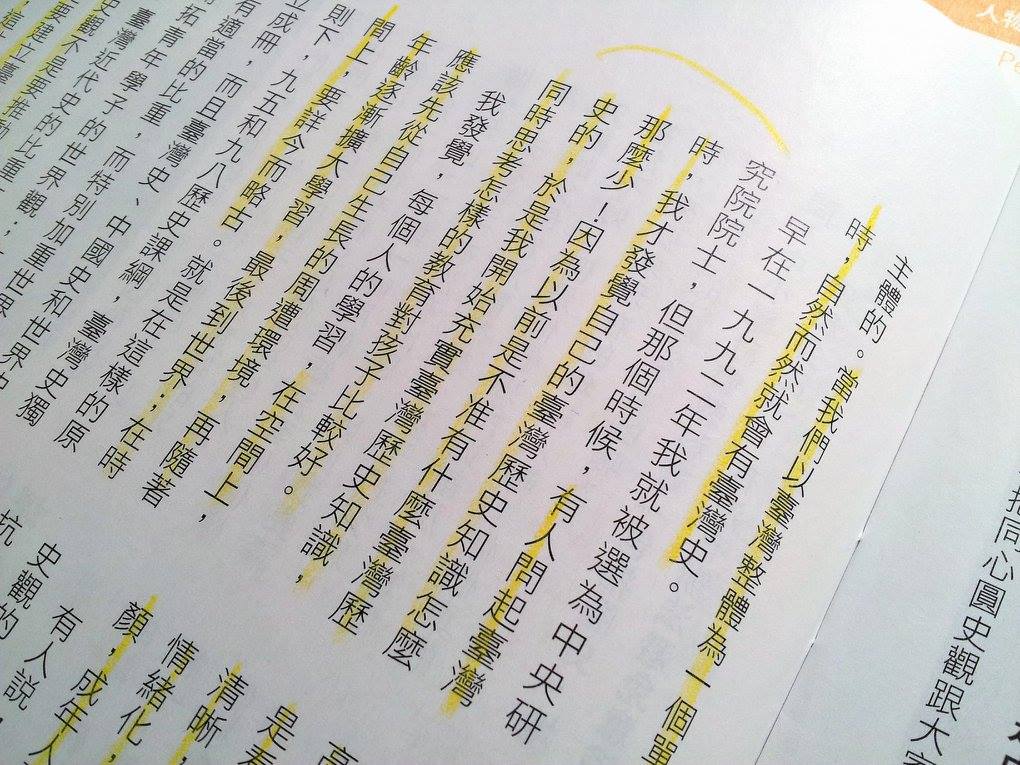 人物
括同心圓史觀跟大家
主體的。當我們以臺灣整體為一個單
時，自然而然就會有臺灣史。
早在一九九二年我就被選為中央研
究院院士，但那個時候，有人問起臺灣
時，我才發覺自己的臺灣歷史知識怎麼
那麼少！因為以前是不准有什麼臺灣歷
史的，於是我開始充實臺灣歷史知識，
同時思考怎樣的教育對孩子比較好。
我發覺，每個人的學習，在空間上，
應該先從自己生長的周遭環境，再隨著
年齡逐漸擴大學習，最後到世界；在時
間上，要詳今而略古。就是在這樣的原
則下，九五和九八歷史課綱，臺灣史獨
立成冊，而且臺灣史、中國史和世界史
有適當的比重，而特別加重世界
拓青年學子的世界觀；
臺灣近代史的比重
史觀不是要推動
要建立臺
高
是看
清晰
情緒化，
顏，成年人
有人說，
史觀的
抗